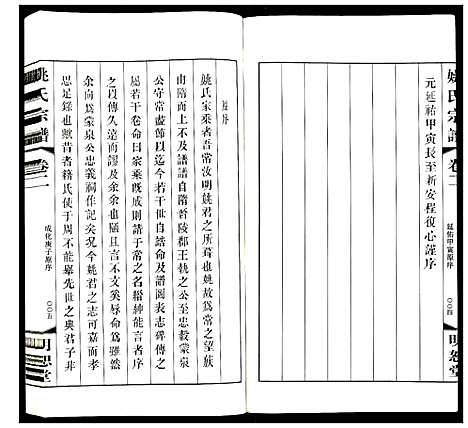 姚氏宗譜
卷二
延佑甲寅原序
〇〇四
明恕堂
元延祐甲寅長至新安程復心謹序
原序
姚氏家乘者吾常汝明姚君之所裔也姚故為常之望族
由隋而今不及譜譜自隋晉陵郡王執之公忠毅蒙泉
公守常盡節以迄今若干世自誌命及譜圖表志碑傳之
屬若干卷命曰家乘既成則請于常之名縉紳能言者序
之以傳久遠而謬及余余也且吝不文奚辱命為雖然
余向為蒙泉公忠義祠作記矣況今姚君之志可嘉而孝
思足錄也歟昔者籍氏使于周不能舉先世之典君子非
成化庚子原序
〇〇五
姚氏宗譜
卷二
明恕堂